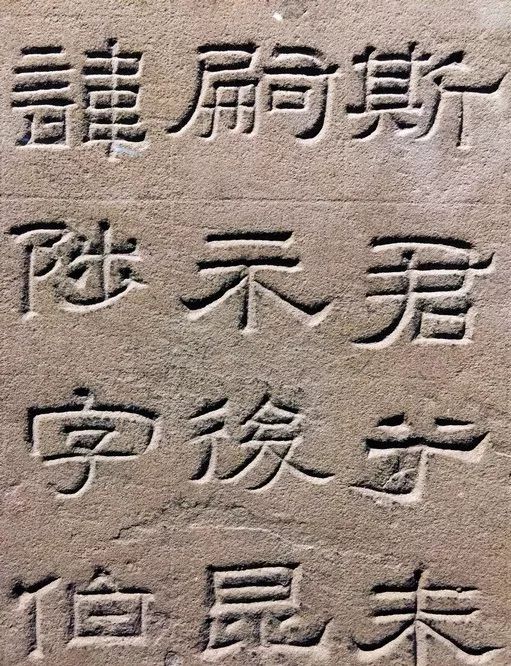 斯君兮未
嗣示後昆
諱陟字伯